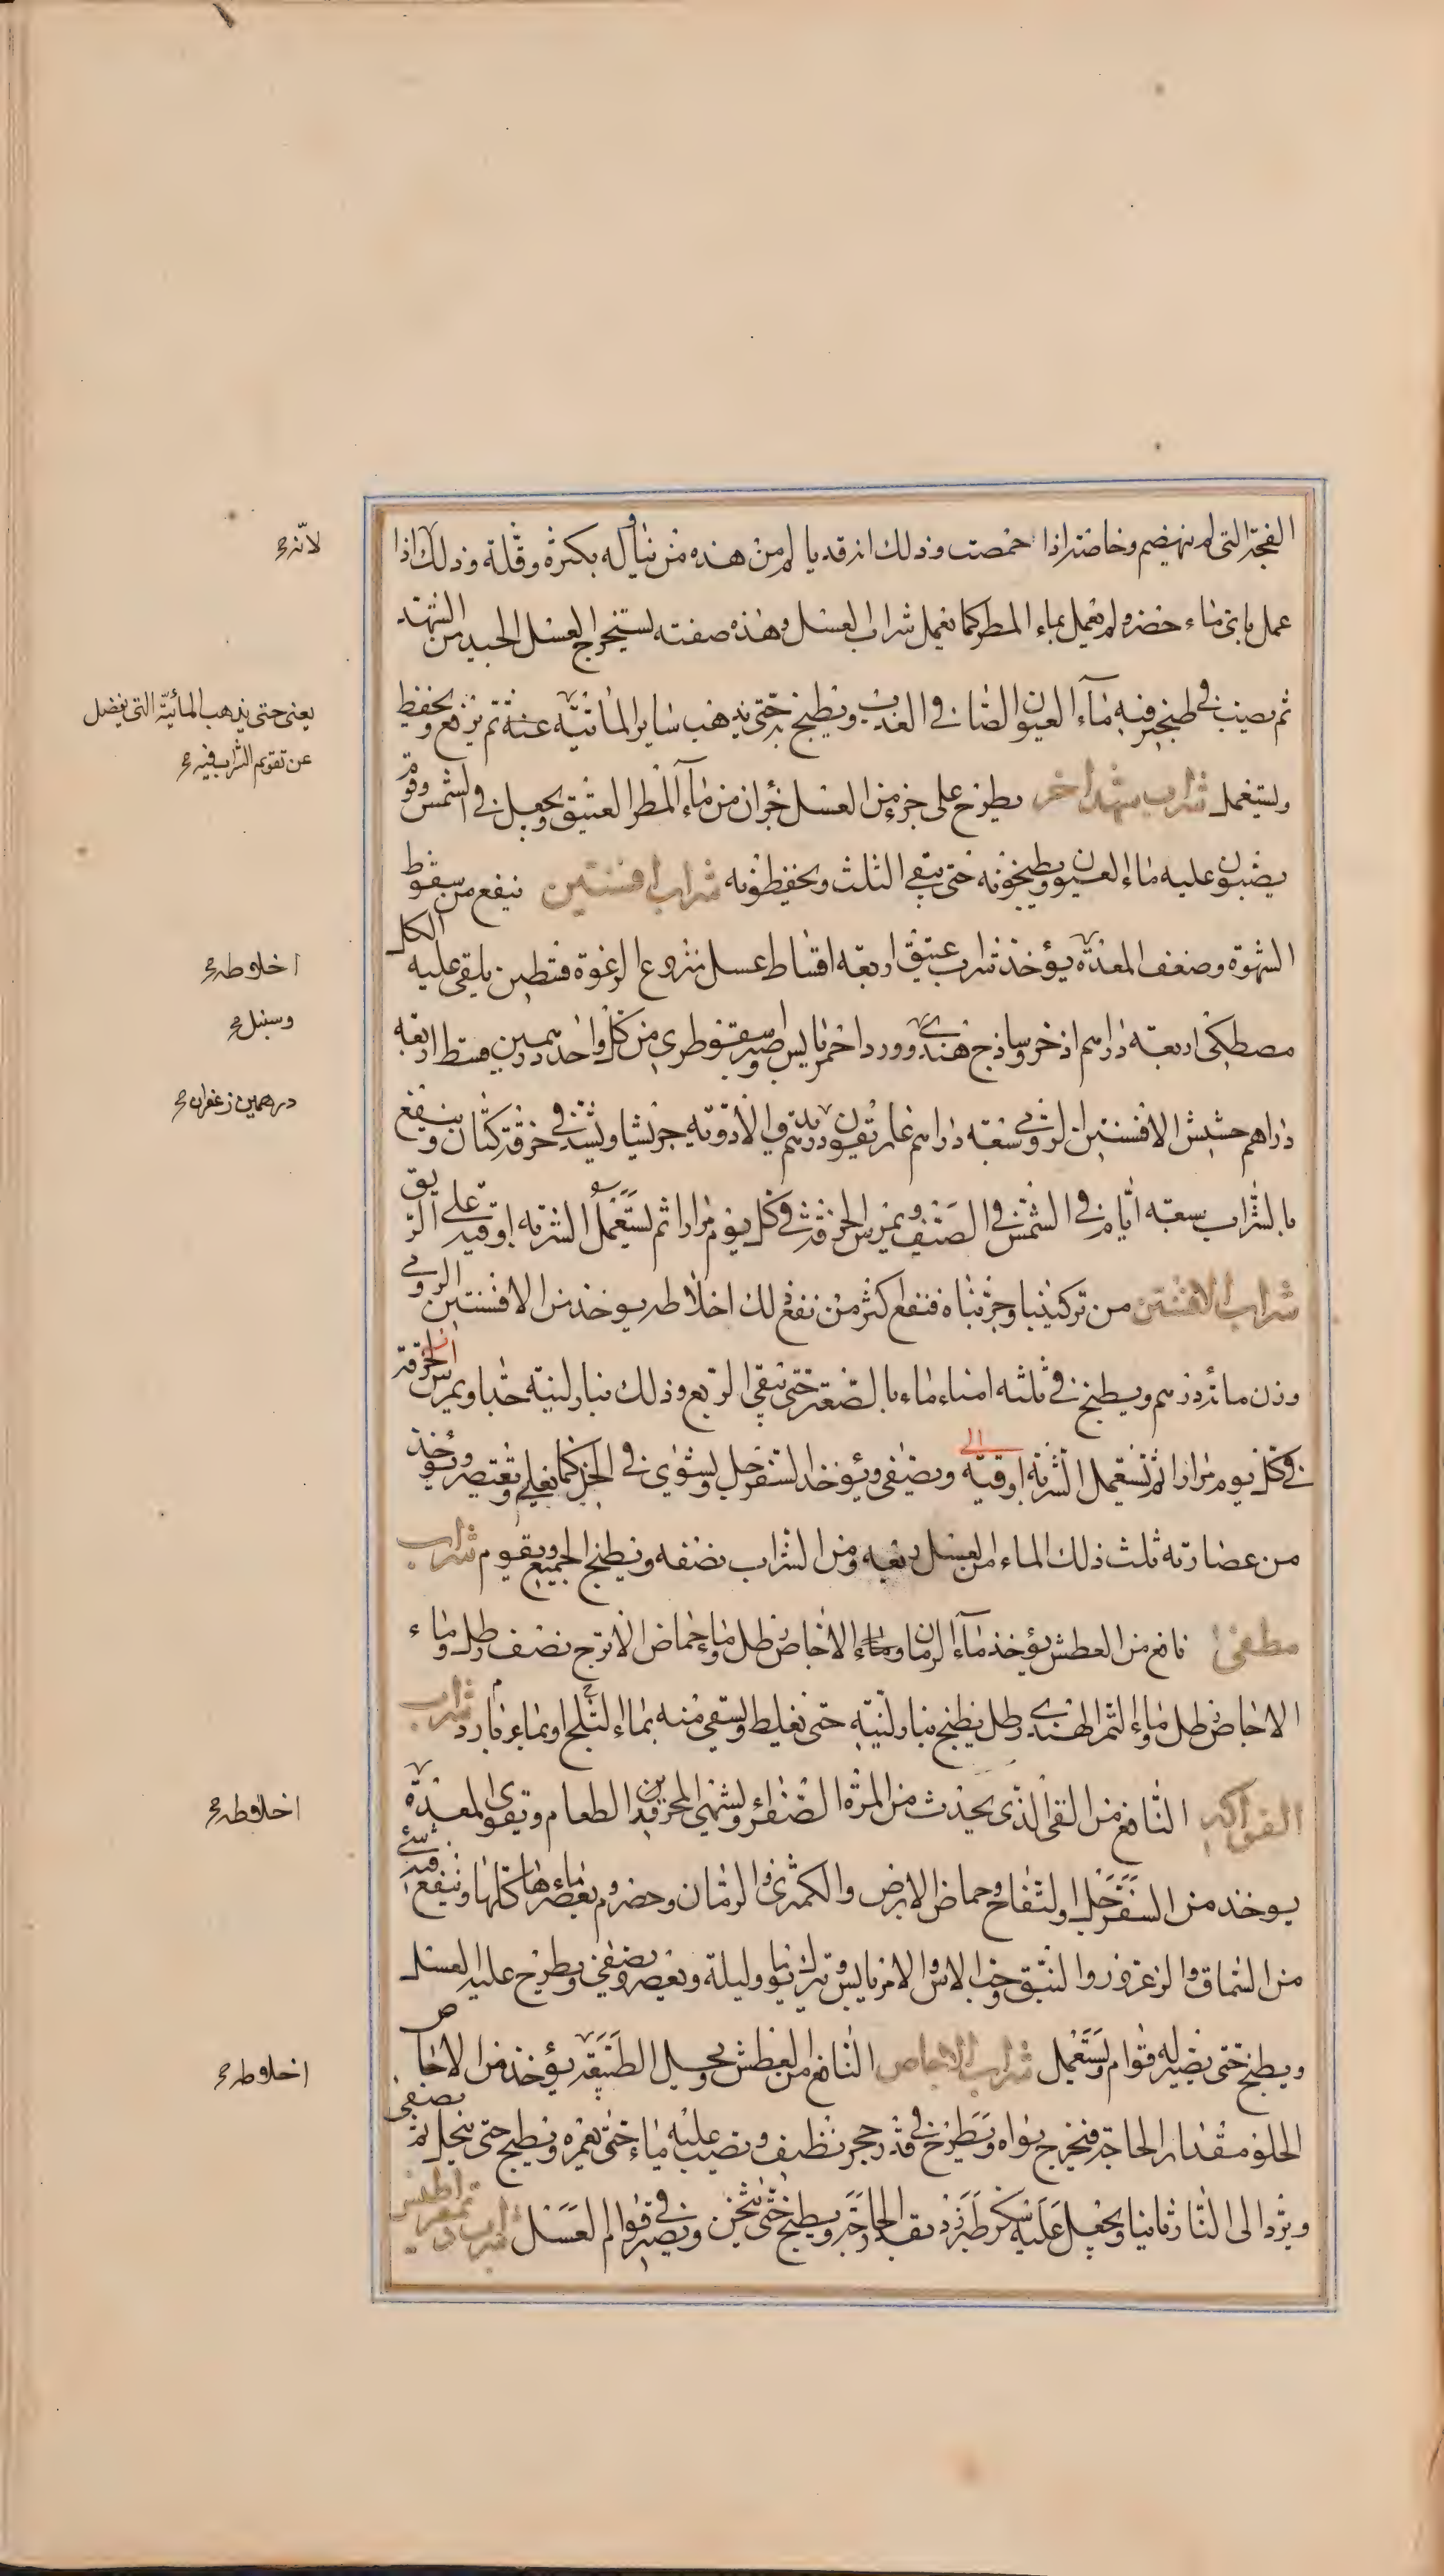 الفجة التى لم تنهضم وخاصته اذا حمضت وذلك انه قد يا لم من هذه من تناوله بكثرة وقلة وذلك اذا
لانه
عمل باى ماء حضر ولم يعمل بماء المطر كما يعمل شراب العسل وهذه صفته يستخرج العسل الجيد من الشهد
ثم يصب فى طنجير فيه ماء العيون الصافى العذب ويطبخ حتى يذهب ساير المائية عنه ثم يرفع ويحفظ
يعنى حتى يذهب المائية التى يفضل
عن تقويم الشراب فيه
ويستعمل شراب شهد اخر يطرح على جزء من العسل جزان من ماء المطر العتيق ويجعل فى الشمس وقوم
يصبون عليه ماء العيون ويطبخونه حتى يبقى الثلث ويحفظونه شراب افسنتين ينفع من سقوط
الشهوة وضعف المعدة يؤخذ شراب عتيق اربعة اقساط عسل منزوع الرغوة قسطين يلقى عليه الكل
اخلاطه
مصطكى اربعة دراهم اذخر وساذج هندى وورد احمر يابس وصبر سقوطرى من كل واحد درهمين قسط اربعة
وسنبل
دراهم حشيش الافسنتين الرومى سبعة دراهم غاريقون درهم الادوية جريشا ويشد فى خرقة كتان وينقع
درهمين زعفران
بالشراب سبعة ايام فى الشمس فى الصيف ويمرس الخرقة فى كل يوم مرارا ثم يستعمل الشربة اوقية على الريق
شراب الافسنتين من تركيبنا وجربناه فنفع اكثر من نفع ذلك اخلاطه يوخذ من الافسنتين الرومى
وزن مائة درهم ويطبخ فى ثلثة امناء ماء بالصغير حتى يبقى الربع وذلك بنار لينة جدا ويمرس الخرقة
فى كل يوم مرارا ثم يستعمل الشربة اوقية الى ويصفى ويؤخذ السفرجل ويشوى فى الخبز كما يغلى ويعتصر ويؤخذ
من عصارته ثلث ذلك الماء من العسل ربعه ومن الشراب نصفه ويطبخ الجميع ويقوم شراب
مطفئ نافع من العطش يؤخذ ماء الرمان وماء الاجاص رطل وماء حماض الاترج نصف رطل وماء
الاجاص رطل وماء التمر الهندى رطل يطبخ بنار لينة حتى يغلظ ويسقى منه بماء الثلج او بماء بارد شراب
الفواكه النافع من القئ الذى يحدث من المرة الصفراء ويشهى المحرورين الطعام ويقوى المعدة
اخلاطه
يوخذ من السفرجل والتفاح وحماض الارض والكمثرى والرمان وحصرم يعصر ماءها كلها وينقع فيه شئ
من السماق والزعرور والنبق وحب الاس والامزباريس ويترك يوما وليلة ويعصر ويصفى ويطرح عليه العسل
ويطبخ حتى يصير له قوام ويستعمل شراب الاجاص النافع من العطش ويحل الطبيعة يؤخذ من الاجاص
اخلاطه
الحلو مقدار الحاجة فيخرج نواه ويطرح فى قدر حجر نظيف ويصب عليه ماء حتى يغمره ويطبخ حتى ينحل ثم يصفى
ويرد الى النار ثانيا ويجعل عليه سكر طبرزد بقدر الحاجة ويطبخ حتى يثخن ويصير فى قوام العسل شراب